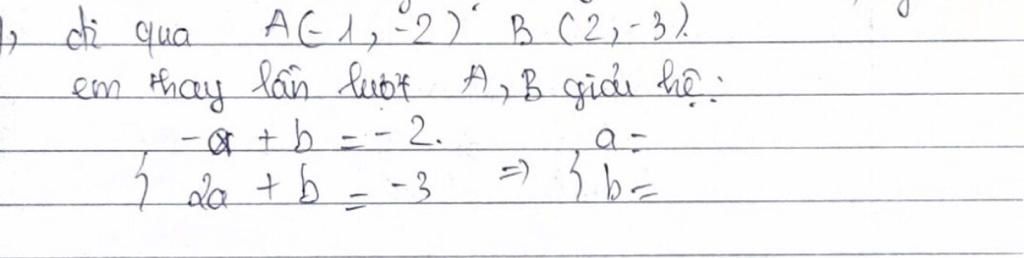 đi qua A(-1, -2) B(2, -3).
em thay lần lượt A, B giải hệ:
{ -a + b = -2. 2a + b = -3 => { a = b =